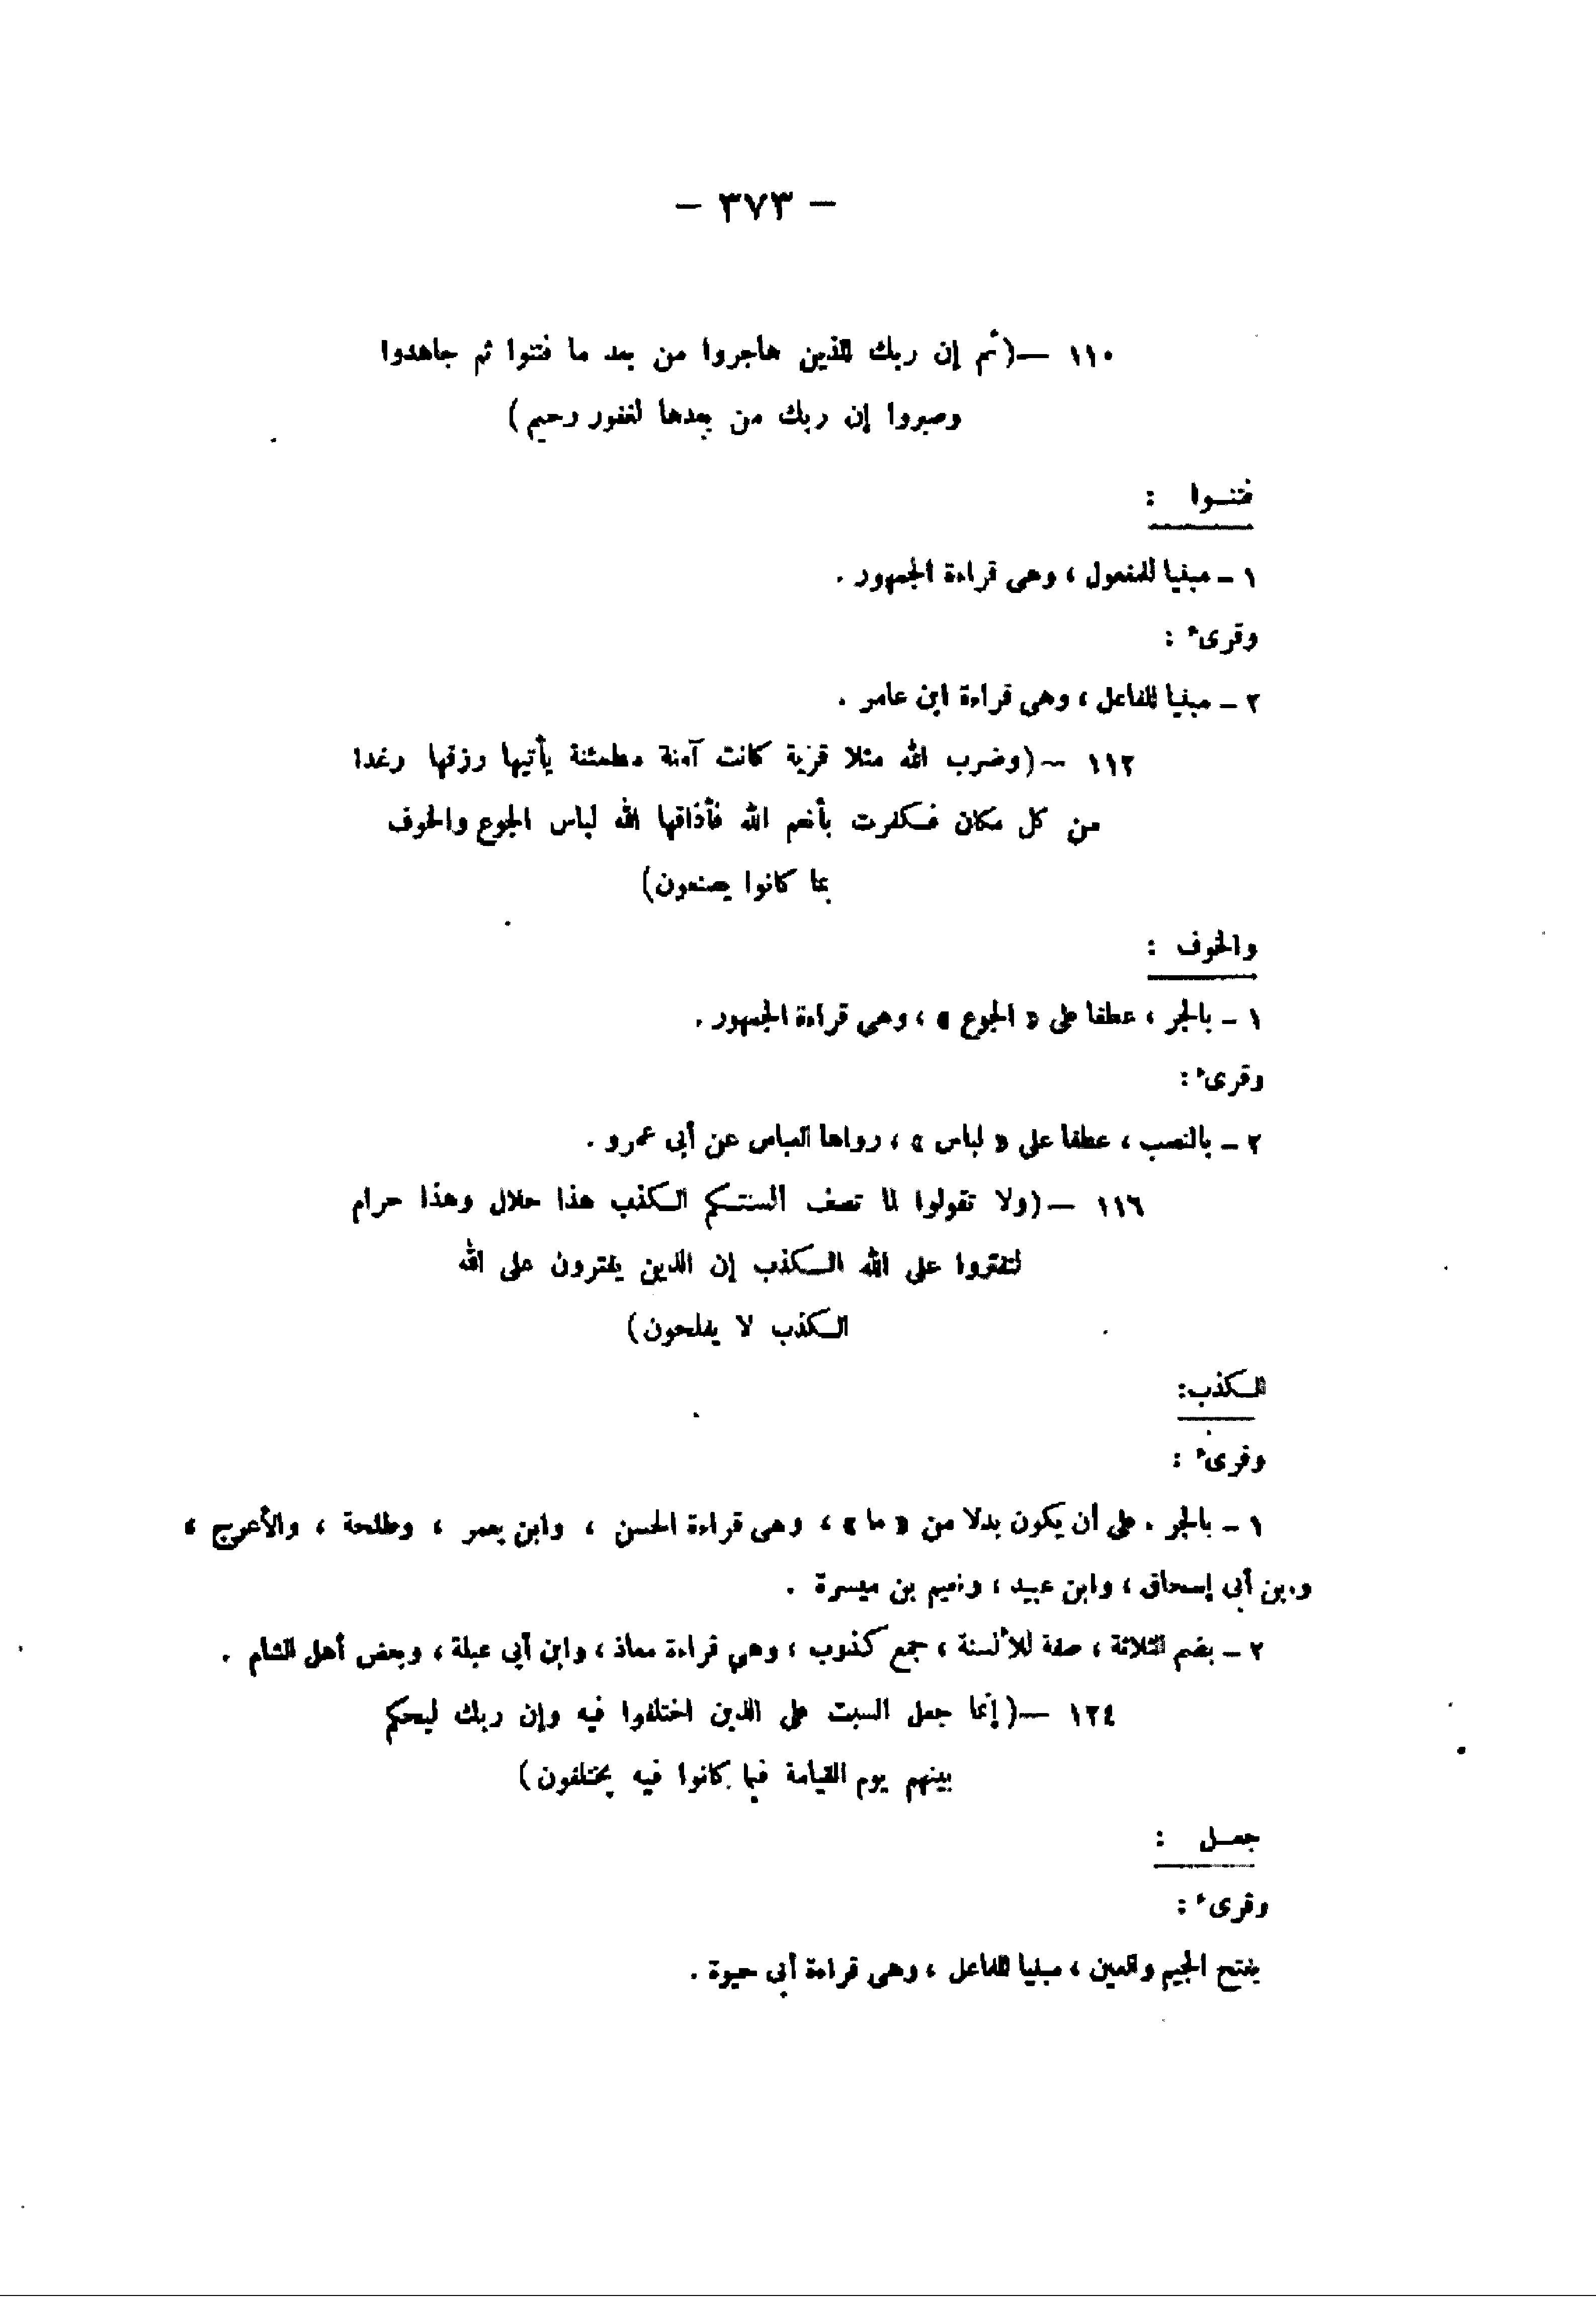 — ٣٧٣ —
١١٠ — (ثم إن ربك للذين هاجروا من بعد ما فتنوا ثم جاهدوا
وصبروا إن ربك من بعدها لغفور رحيم)
فتنــوا :
١ ــ مبنيا للمفعول ، وهى قراءة الجمهور .
وقرىء :
٢ ــ مبنيا للفاعل ، وهى قراءة ابن عامر .
١١٢ — (وضرب الله مثلا قرية كانت آمنة مطمئنة يأتيها رزقها رغدا
من كل مكان فكفرت بأنعم الله فأذاقها الله لباس الجوع والخوف
بما كانوا يصنعون)
والخوف :
١ ــ بالجر ، عطفا على « الجوع » ، وهى قراءة الجمهور .
وقرىء :
٢ ــ بالنصب ، عطفا على « لباس » ، رواها العباس عن أبى عمرو .
١١٦ — (ولا تقولوا لما تصف ألسنتكم الكذب هذا حلال وهذا حرام
لتفتروا على الله الكذب إن الذين يفترون على الله
الكذب لا يفلحون)
الكذب:
وقرىء :
١ ــ بالجر . على أن يكون بدلا من « ما » ، وهى قراءة الحسن ، وابن يعمر ، وطلحة ، والأعرج ،
وابن أبى إسحاق ، وابن عبيد ، ونعيم بن ميسرة .
٢ ــ بضم الثلاثة ، صفة للألسنة ، جمع كذوب ، وهى قراءة معاذ ، وابن أبى عبلة ، وبعض أهل الشام .
١٢٤ — (إنما جعل السبت على الذين اختلفوا فيه وإن ربك ليحكم
بينهم يوم القيامة فيما كانوا فيه يختلفون)
جعــل :
وقرىء :
بفتح الجيم والعين ، مبنيا للفاعل ، وهى قراءة أبى حيوة .